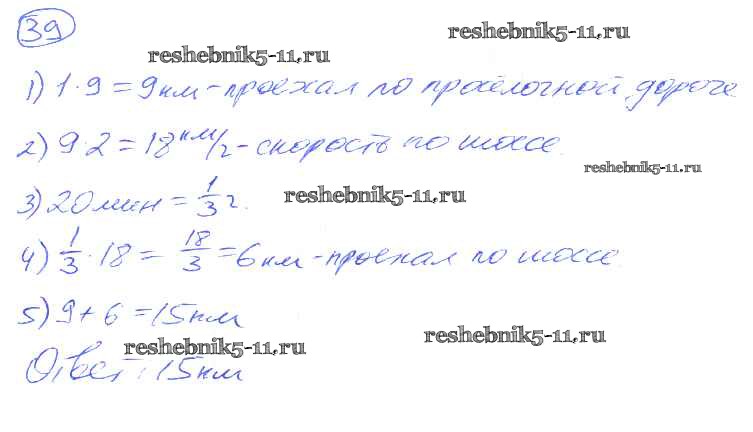 39
reshebnik5-11.ru
reshebnik5-11.ru
1) 1·9=9км-проехал по просёлочной дороге
2) 9·2=18 км/ч-скорость по шоссе.
reshebnik5-11.ru
3) 20мин = 1/3 ч.
reshebnik5-11.ru
4) 1/3·18 = 18/3 =6км-проехал по шоссе.
5) 9+6=15км
reshebnik5-11.ru
reshebnik5-11.ru
Ответ: 15км